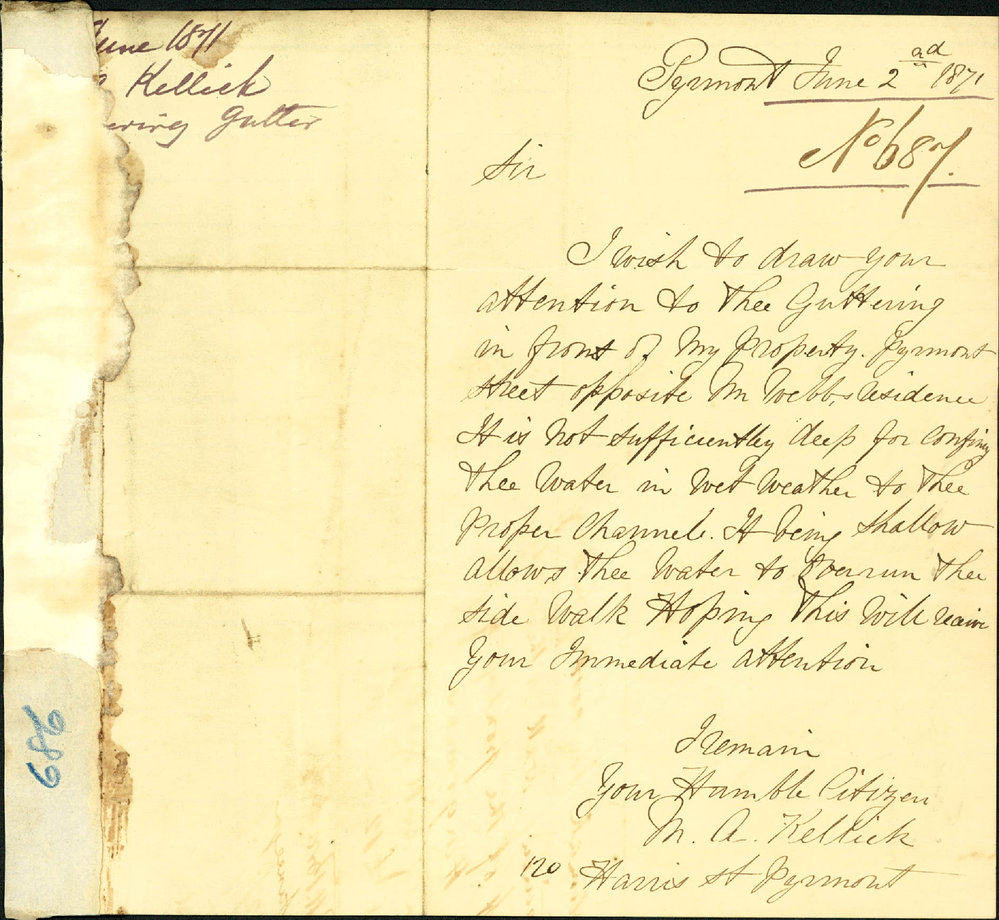 June 1871
Kellick
Gutter
Pyrmont June 2nd 1871
No 687.
Sir
I wish to draw your
attention to thee Guttering
in front of My Property. Pyrmont
street opposite Mr Webbs residence
It is Not sufficiently deep for Confing
thee Water in Wet Weather to thee
Proper Channel. It being shallow
allows thee Water to Overrun thee
side Walk Hoping This Will receive
Your Immediate attention
I remain
Your Humble Citizen
M. A. Kellick
120 Harris st Pyrmont
686